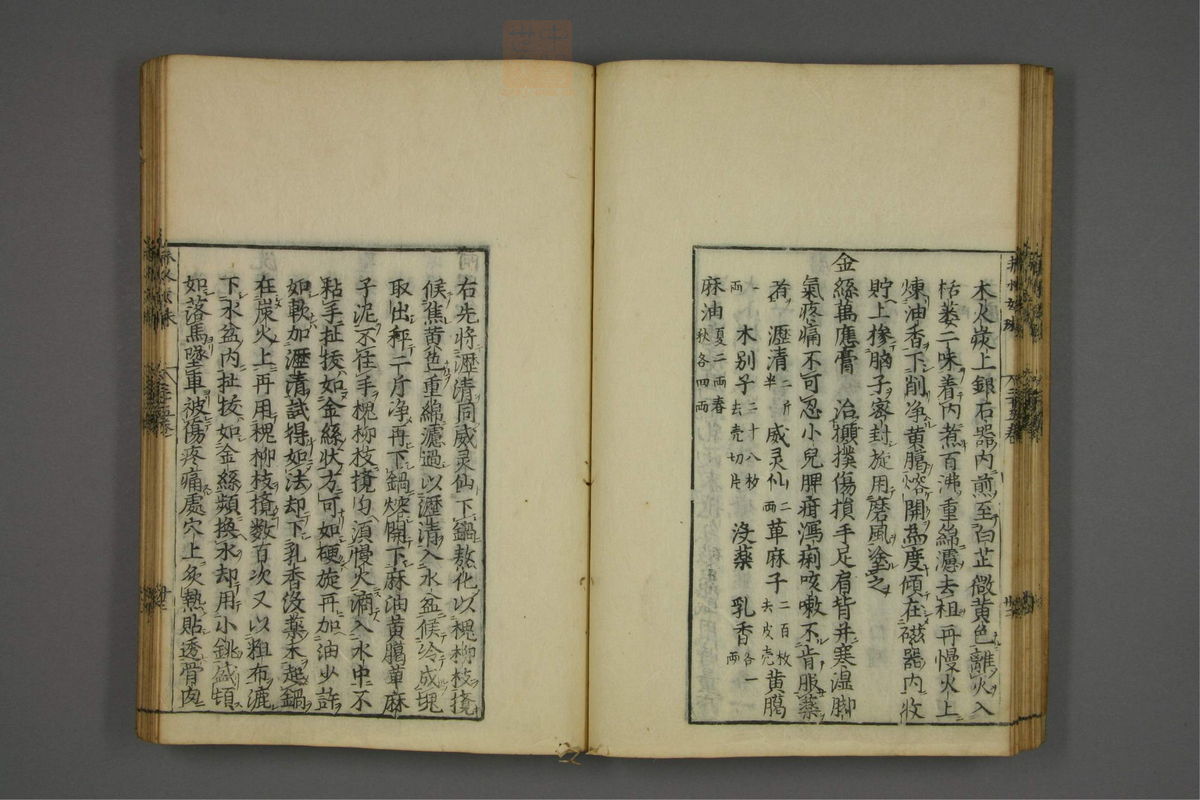 木火痰上銀石器內煎至白芷微黃色離火入
栝蔞二味着內煮百沸重綿濾去柤再慢火上
煉油香下削净黃臈熔開為度傾在磁器內收
貯上掺腦子密封旋用磨風塗之
金絲萬應膏 治攧撲傷損手足肩背并寒濕脚
氣疼痛不可忍小兒脾疳瀉痢咳嗽不肯服藥
者 瀝清二斤半 威灵仙二兩 草麻子二百枚去皮壳 黃臈
一兩 木別子二十八枚去壳切片 沒藥 乳香各一兩
麻油夏二兩春秋各四兩
右先將瀝清同威灵仙下鍋熬化以槐柳枝撹
候焦黃色重綿濾過以瀝清入水盆候冷成塊
取出秤二斤净再下鍋熔開下麻油黃臈草麻
子泥不住手槐柳枝撹匀須慢火滴入水中不
粘手扯拔如金絲状方可如硬旋再加油少許
如軟加瀝清試得如法却下乳香沒藥末起鍋
在炭火上再用槐柳枝撹数百次又以粗布漉
下水盆內扯拔如金絲頻換水却用小銚盛頓
如落馬墜車被傷疼痛處穴上灸熱貼透骨肉